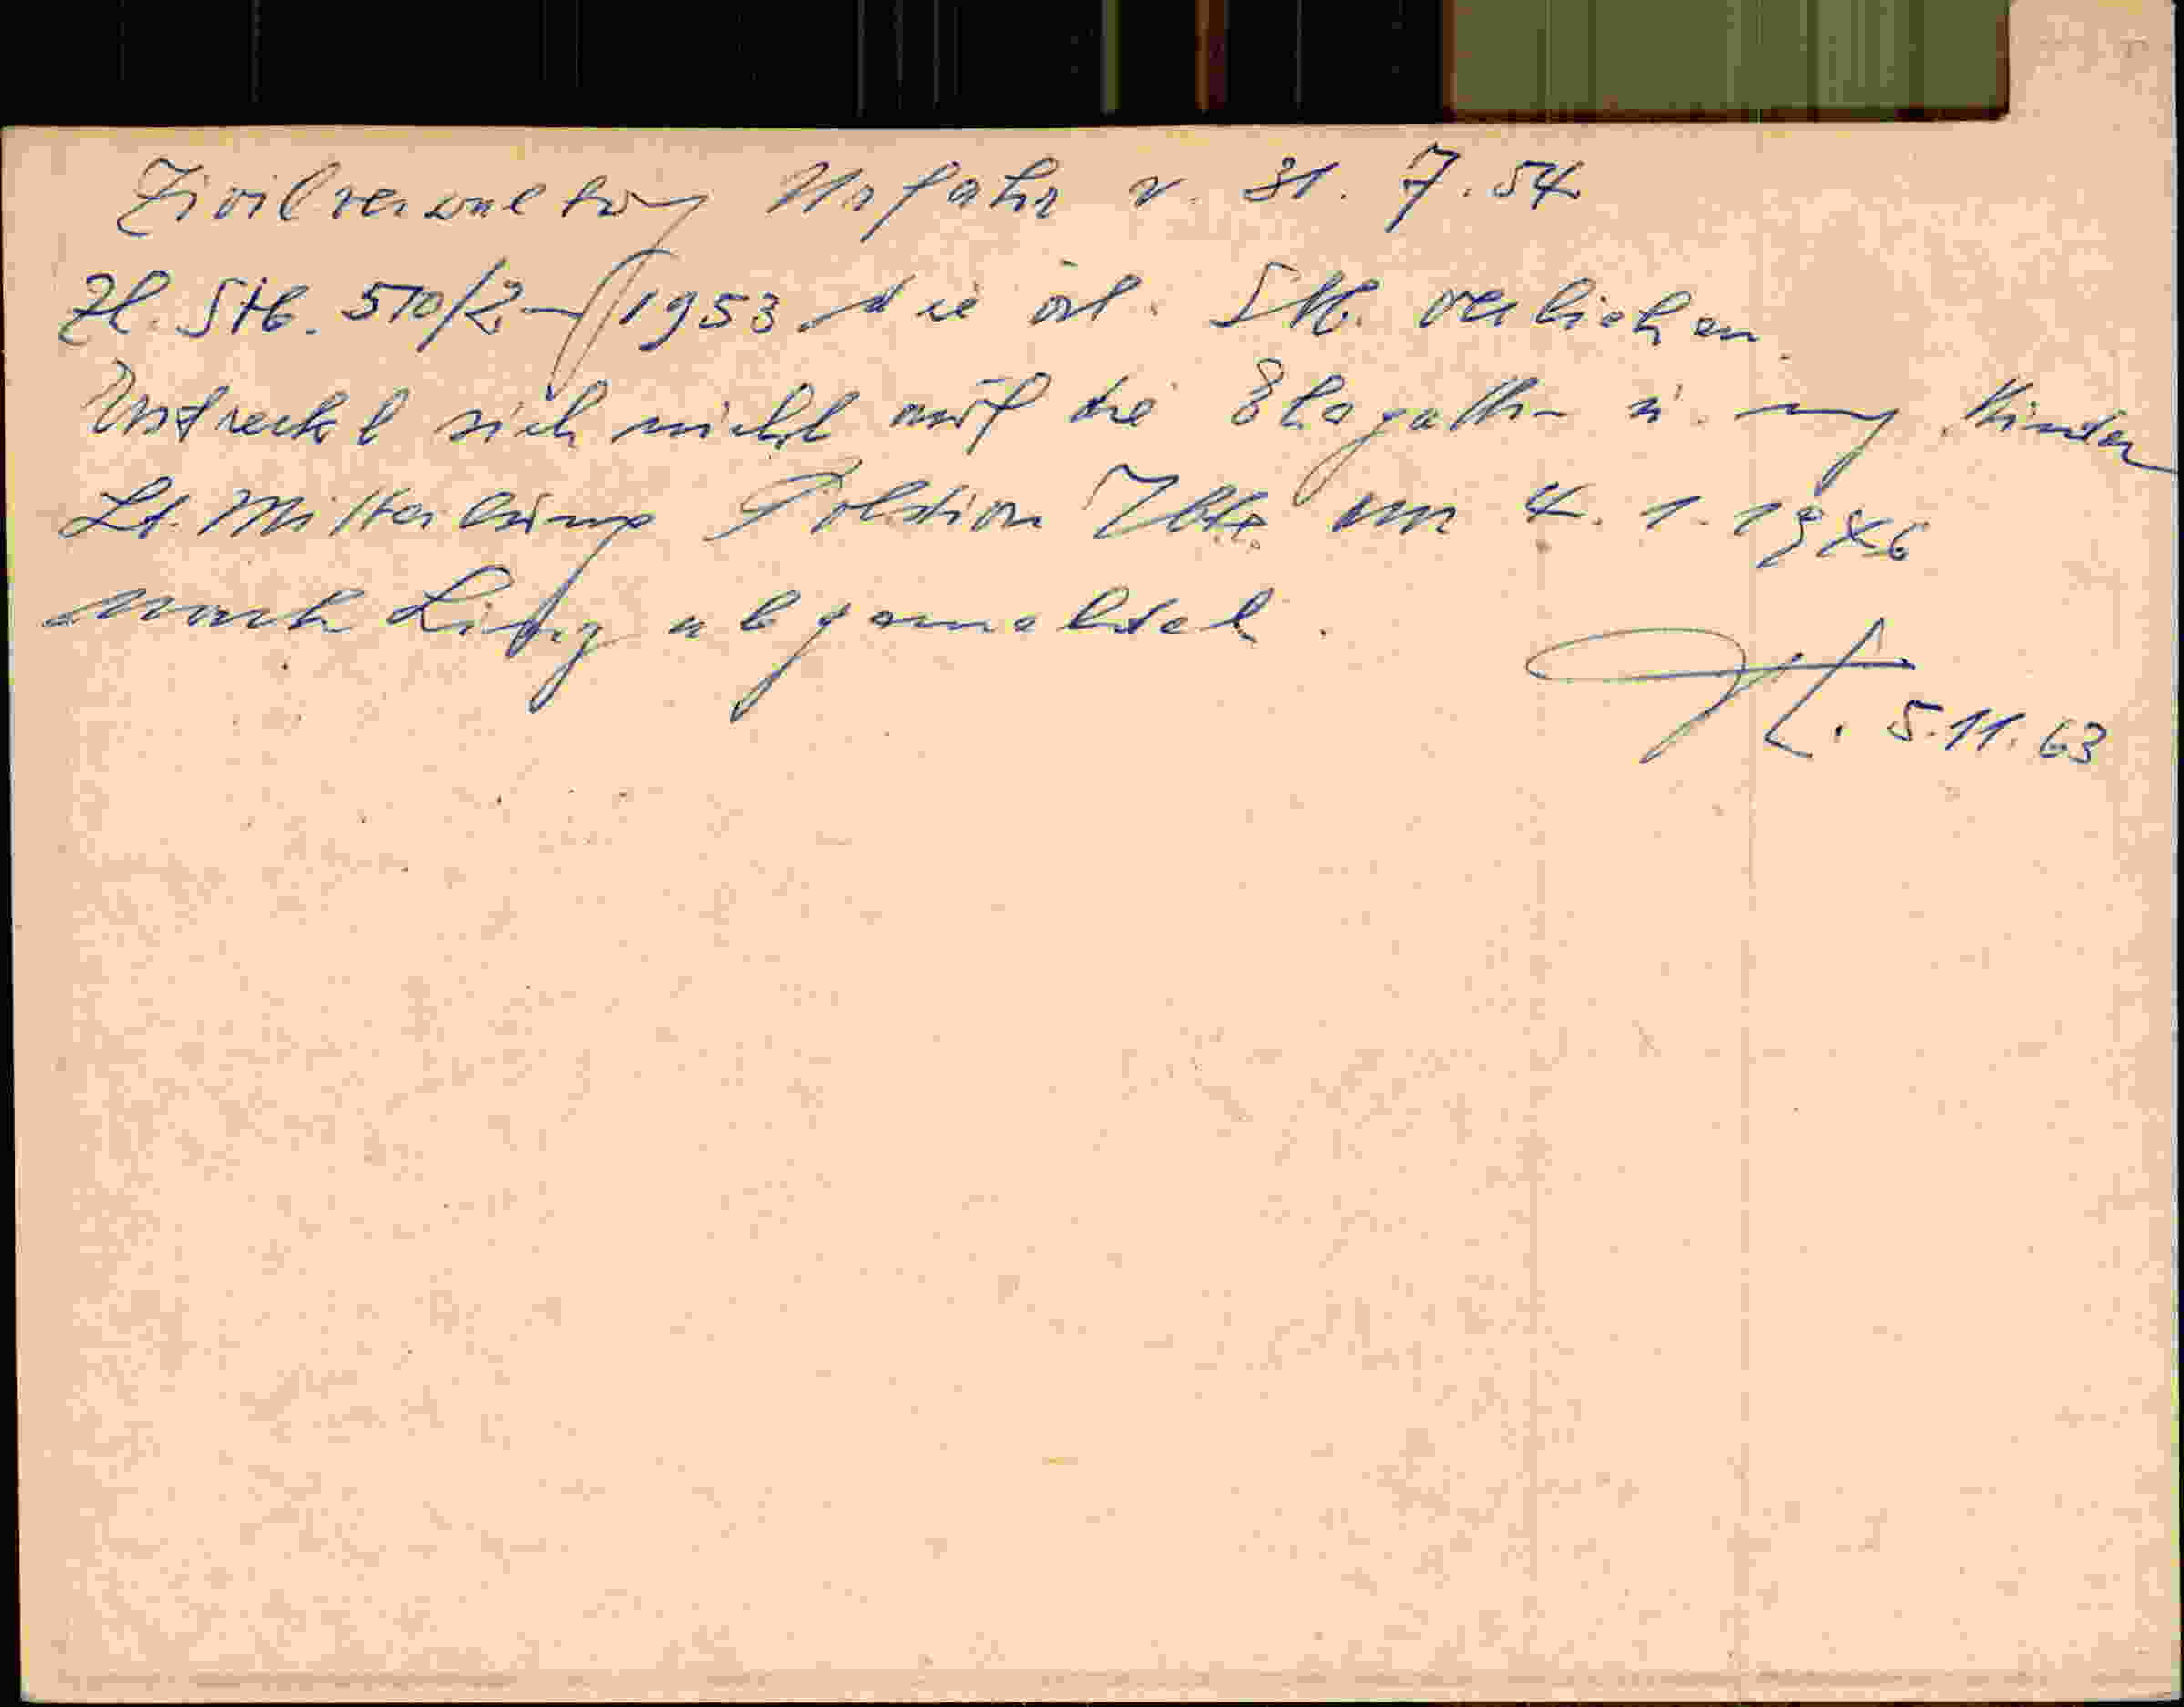 Zivilverwaltung Urfahr v. 31. 7. 54
Zl. Stb. 510/2-1953 die öst. Stb. verliehen.
Erstreckt sich nicht auf die Ehegattin u. mj. Kinder
Lt. Mitteilung am 4. 1. 1946
nach abgemeldet.
5.11.63